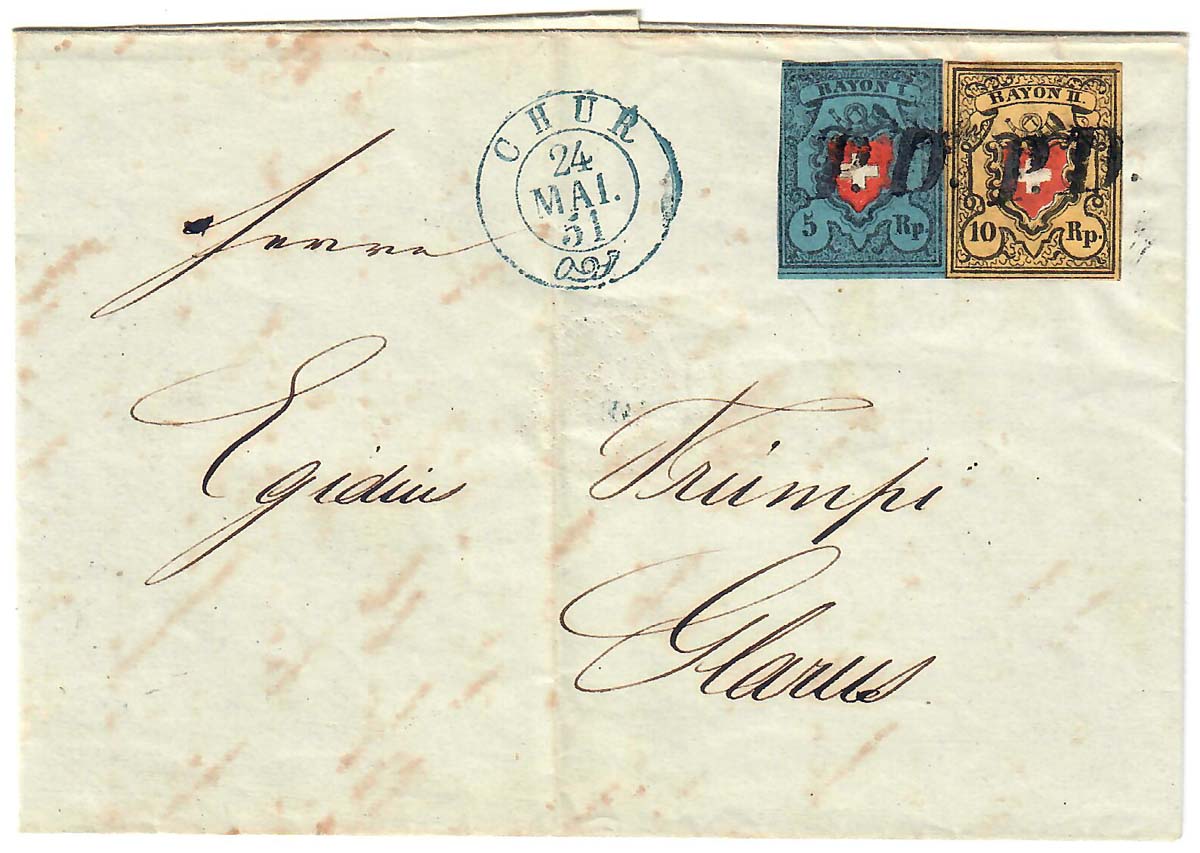 CHUR
24
MAI.
51
RAYON I.
5 Rp.
RAYON II.
10 Rp.
P.D. P.D.
Herrn
Egidius Trümpi
Glarus